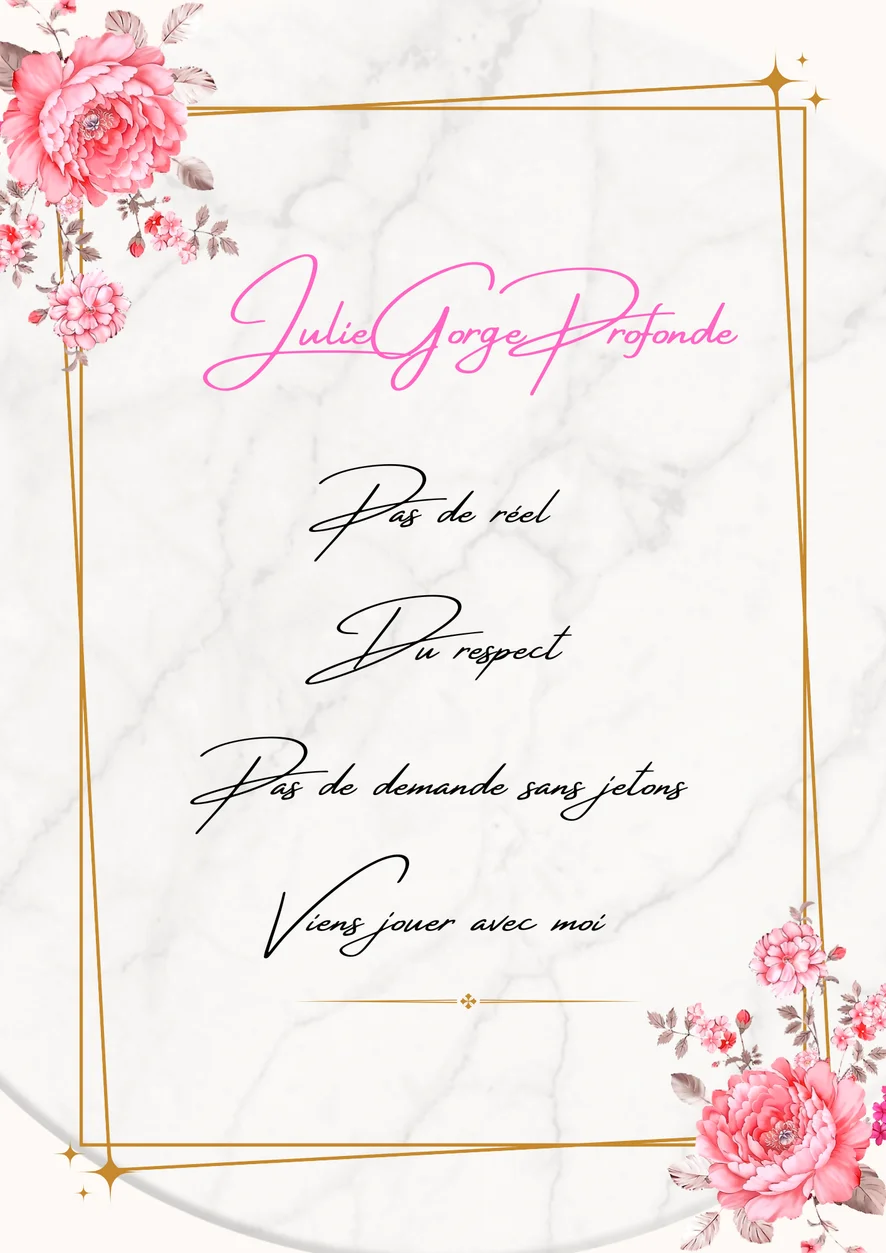 JulieGorgeProfonde
Pas de réel
Du respect
Pas de demande sans jetons
Viens jouer avec moi